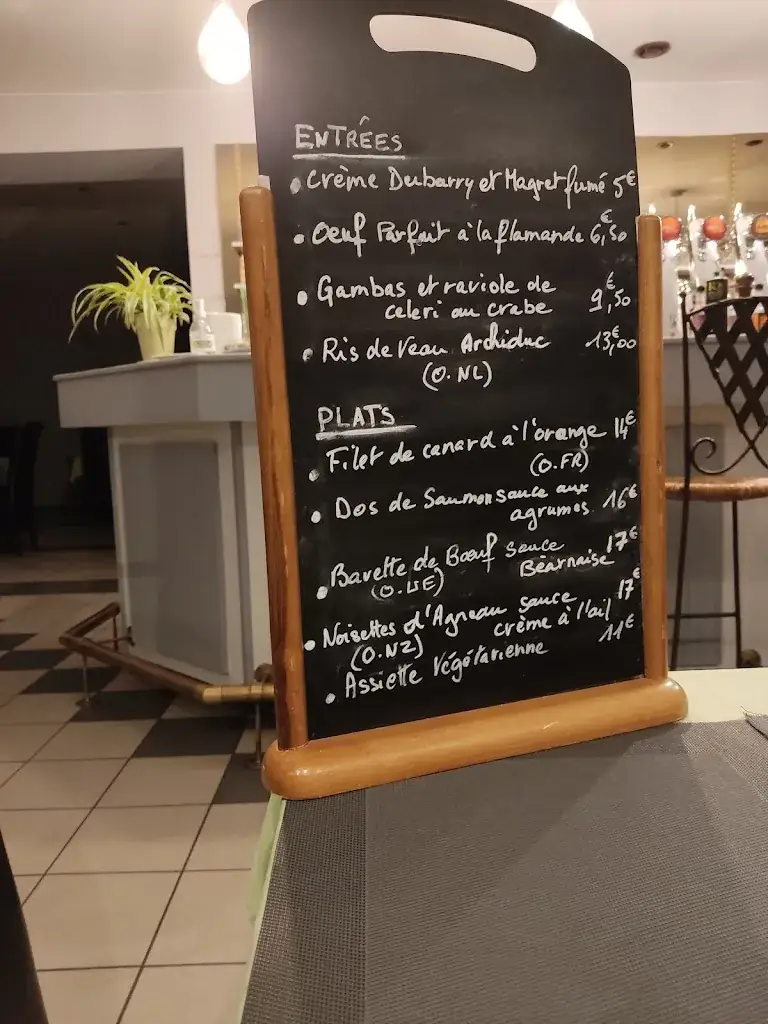 ENTRÉES
• Crème Dubarry et Magret fumé 5€
• Oeuf Parfait à la flamande 6,50€
• Gambas et raviole de
celeri au crabe 9,50€
• Ris de Veau Archiduc 13,00€
(O.NL)
PLATS
• Filet de canard à l'orange 14€
(O.FR)
• Dos de Saumon sauce aux
agrumes 16€
• Bavette de Bœuf sauce
(O.UE) Béarnaise 17€
• Noisettes d'Agneau sauce 17€
(O.NZ) crème à l'ail
• Assiette Végétarienne 11€